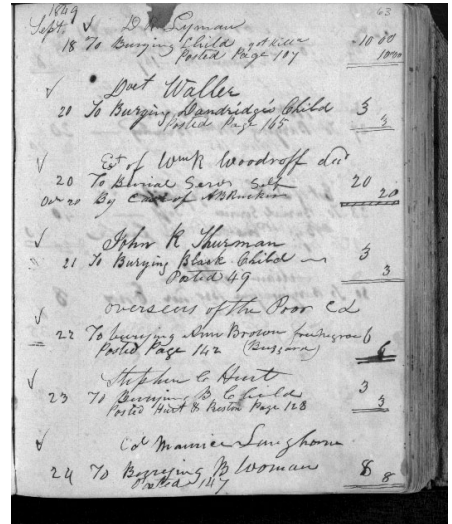 1849 63
Sept. √ D. W. Lyman
18 To Burying Child 10 00
Posted Page 107 10 00
√ Doct Waller
20 To Burying Dandridge's Child 3
Posted Page 165 3
√ Est of Woodroff
20 To Burial Self 20
20 By Cash of 20
√ John R Thurman
21 To Burying Black Child 3
Posted 49 3
√ overseers of the Poor
22 To burying Ann Brown free negroe 6
Posted Page 142 (Buzzard) 6
√ Stephen C Hurt
23 To Burying B Child 3
Posted Hurt & Preston Page 128 3
√ Maurice Langhorne
24 To Burying B Woman 8
Posted 147 8